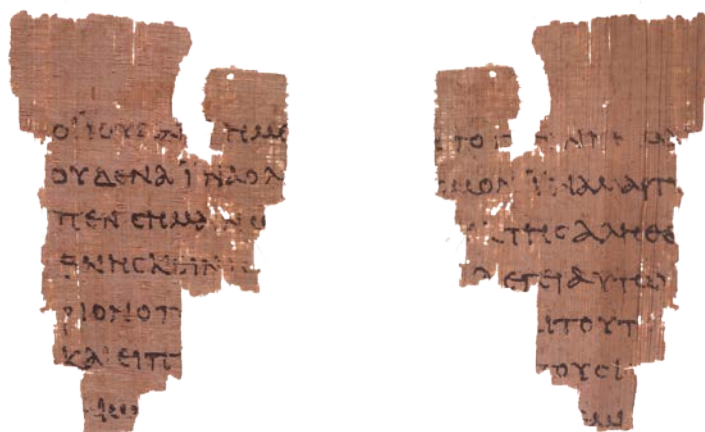 ΟΙ ΙΟΥΔΑΙ ΗΜΕ
ΟΥΔΕΝΑ ΪΝΑ Ο Λ
ΠΕΝ CΗΜΑΙΝΩ
ΘΝΗCΚΕΙΝ
ΡΙΟΝ Ο Π
ΚΑΙ ΕΙΠ
ΤΟ Γ ΝΝΗΜΑΙ
CΜΟΝ ΪΝΑ ΜΑΡΤΥ
Κ ΤΗC ΑΛΗΘΕ
ΛΕΓΕΙ ΑΥΤΩ
ΑΙ ΤΟΥΤ
ΤΟΥC Ι